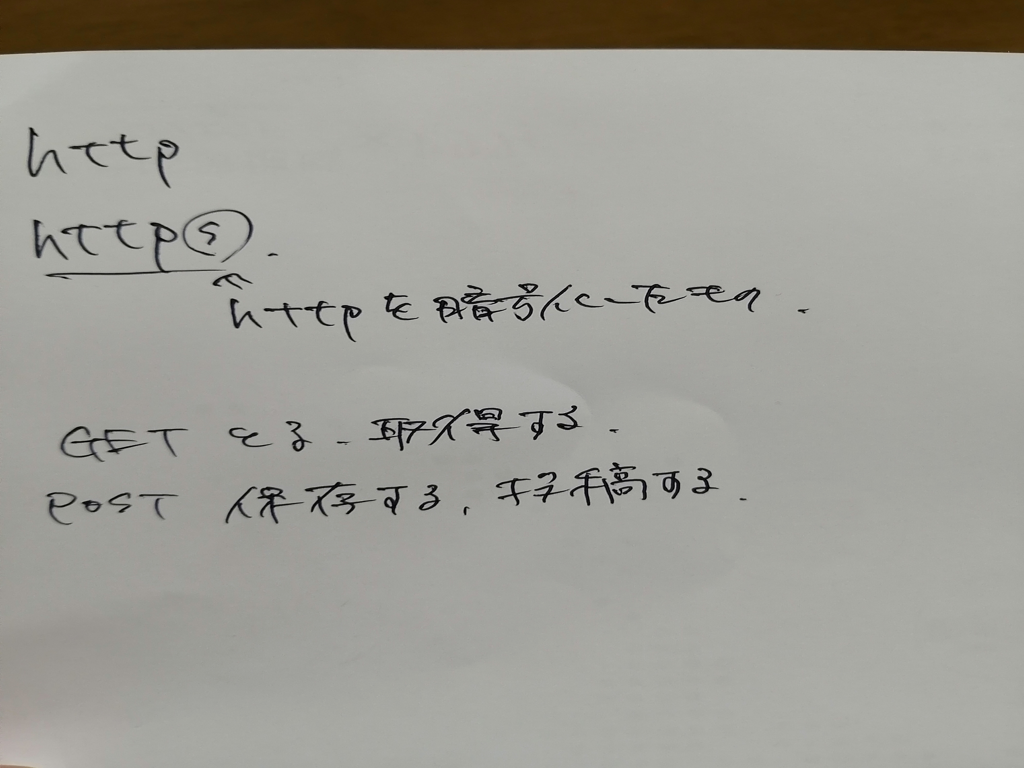 http
https.
httpを暗号化したもの.
GET とる、取得する.
POST 保存する, 投稿する.